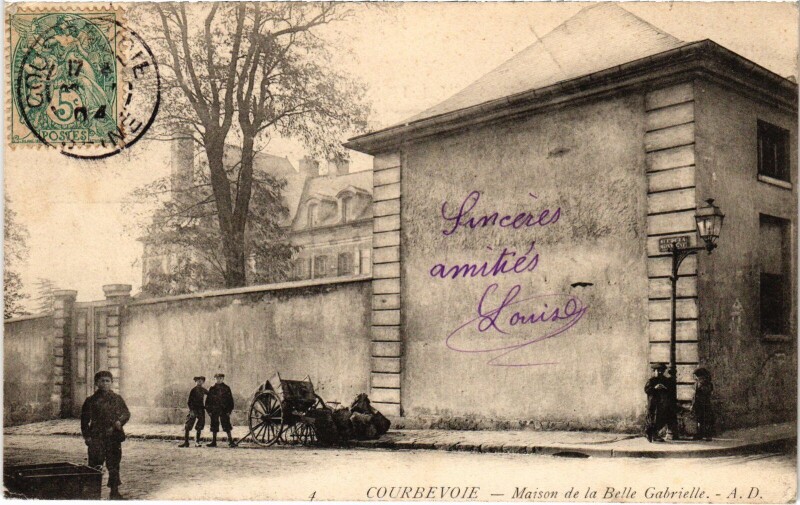 COURBEVOIE
17
04
SEINE
5c
POSTES
Sincères
amitiés
Louise
4 COURBEVOIE — Maison de la Belle Gabrielle. - A. D.